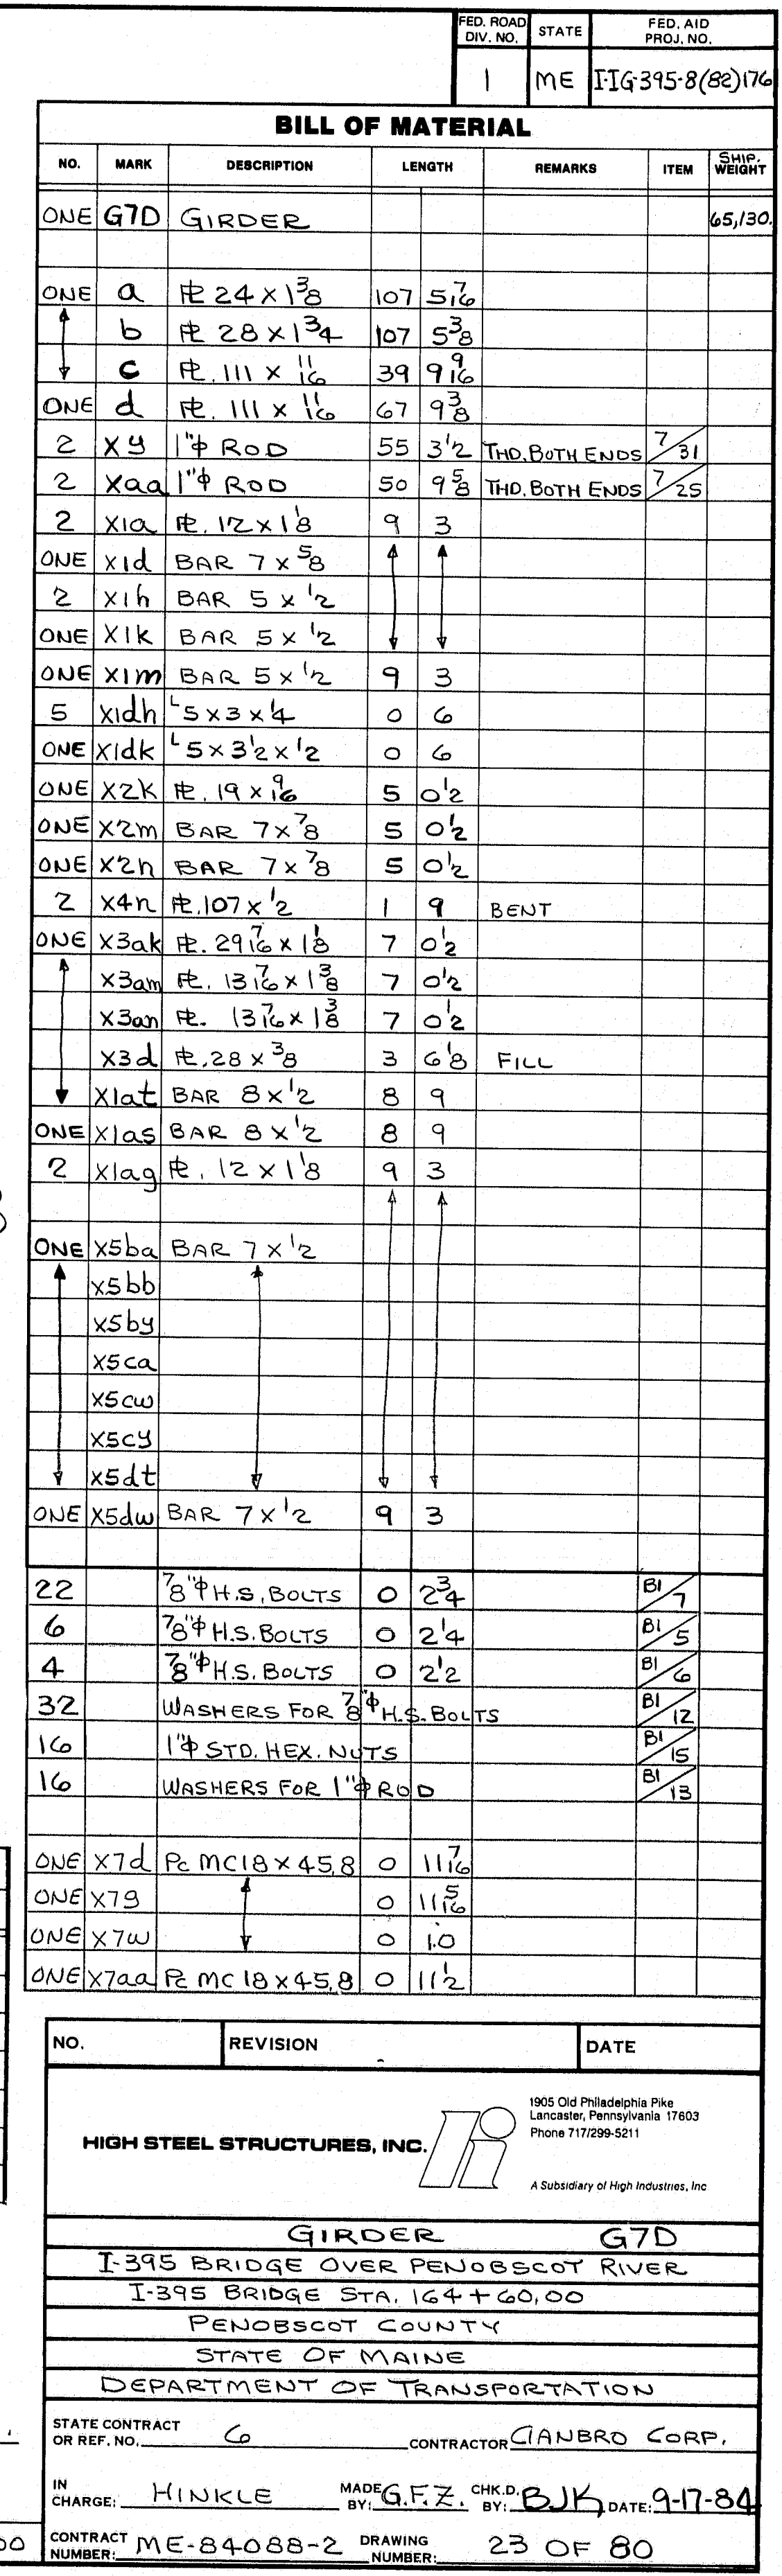 FED. ROAD DIV. NO. STATE FED. AID PROJ. NO.
1 ME I-IG-395-8(82)176
BILL OF MATERIAL
NO. MARK DESCRIPTION LENGTH REMARKS ITEM SHIP. WEIGHT
ONE G7D GIRDER 65,130.
ONE a PL 24 x 1 3/8 107 5 7/16
b PL 28 x 1 3/4 107 5 3/8
c PL. 111 x 11/16 39 9 9/16
ONE d PL. 111 x 11/16 67 9 3/8
2 xy 1"ϕ ROD 55 3 1/2 THD. BOTH ENDS 7/31
2 xaa 1"ϕ ROD 50 9 5/8 THD. BOTH ENDS 7/25
2 x1a PL. 12 x 1 1/8 9 3
ONE x1d BAR 7 x 5/8
2 x1h BAR 5 x 1/2
ONE x1k BAR 5 x 1/2
ONE x1m BAR 5 x 1/2 9 3
5 x1dh L 5 x 3 x 1/4 0 6
ONE x1dk L 5 x 3 1/2 x 1/2 0 6
ONE x2k PL. 19 x 9/16 5 0 1/2
ONE x2m BAR 7 x 7/8 5 0 1/2
ONE x2n BAR 7 x 7/8 5 0 1/2
2 x4n PL. 107 x 1/2 1 9 BENT
ONE x3ak PL. 29 7/16 x 1 1/8 7 0 1/2
x3am PL. 13 7/16 x 1 3/8 7 0 1/2
x3an PL. 13 7/16 x 1 3/8 7 0 1/2
x3d PL. 28 x 3/8 3 6 1/8 FILL
x1at BAR 8 x 1/2 8 9
ONE x1as BAR 8 x 1/2 8 9
2 x1ag PL. 12 x 1 1/8 9 3
ONE x5ba BAR 7 x 1/2
x5bb
x5by
x5ca
x5cw
x5cy
x5dt
ONE x5dw BAR 7 x 1/2 9 3
22 7/8"ϕ H.S. BOLTS 0 2 3/4 B1/7
6 7/8"ϕ H.S. BOLTS 0 2 1/4 B1/5
4 7/8"ϕ H.S. BOLTS 0 2 1/2 B1/6
32 WASHERS FOR 7/8"ϕ H.S. BOLTS B1/12
16 1"ϕ STD. HEX. NUTS B1/15
16 WASHERS FOR 1"ϕ ROD B1/13
ONE x7d Pc MC18 x 45.8 0 11 7/16
ONE x7g 0 11 5/16
ONE x7w 0 1.0
ONE x7aa Pc MC 18 x 45.8 0 11 1/2
NO. REVISION DATE
HIGH STEEL STRUCTURES, INC.
1905 Old Philadelphia Pike
Lancaster, Pennsylvania 17603
Phone 717/299-5211
A Subsidiary of High Industries, Inc
GIRDER G7D
I-395 BRIDGE OVER PENOBSCOT RIVER
I-395 BRIDGE STA. 164+60.00
PENOBSCOT COUNTY
STATE OF MAINE
DEPARTMENT OF TRANSPORTATION
STATE CONTRACT OR REF. NO. 6 CONTRACTOR CIANBRO CORP.
IN CHARGE: HINKLE MADE BY: G.F.Z. CHK.D. BY: BJK DATE: 9-17-84
CONTRACT NUMBER: ME-84088-2 DRAWING NUMBER: 23 OF 80